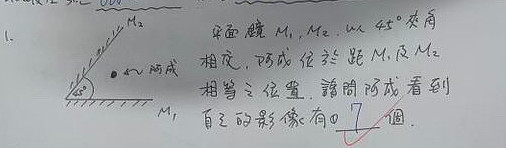 1.
M₂
阿成
45°
M₁
平面鏡 M₁, M₂, 以 45° 夾角
相交, 阿成位於距 M₁ 及 M₂
相等之位置, 請問阿成看到
自己的影像有 7 個.